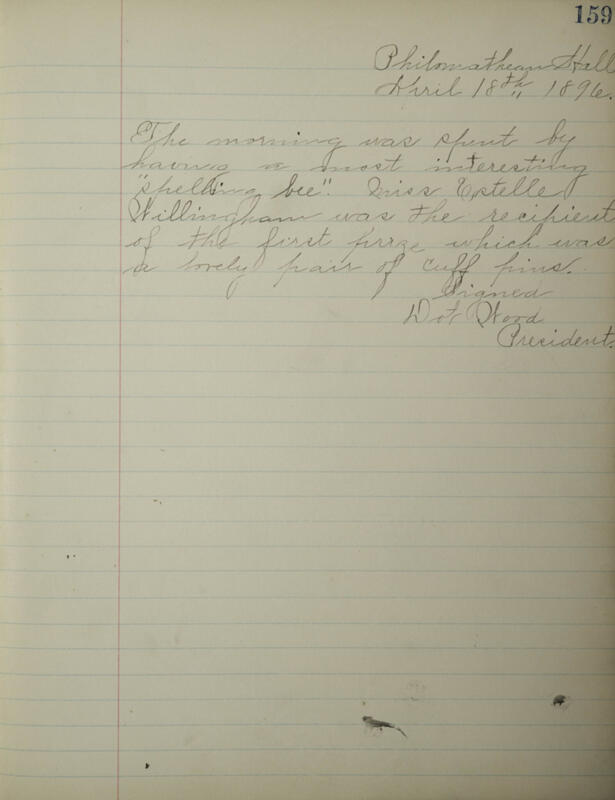 159
Philomathean Hall
April 18th, 1896.
The morning was spent by
having a most interesting
"spelling bee". Miss Estelle
Willingham was the recipient
of the first prize which was
a lovely pair of cuff pins.
Signed
Dot Wood
President.